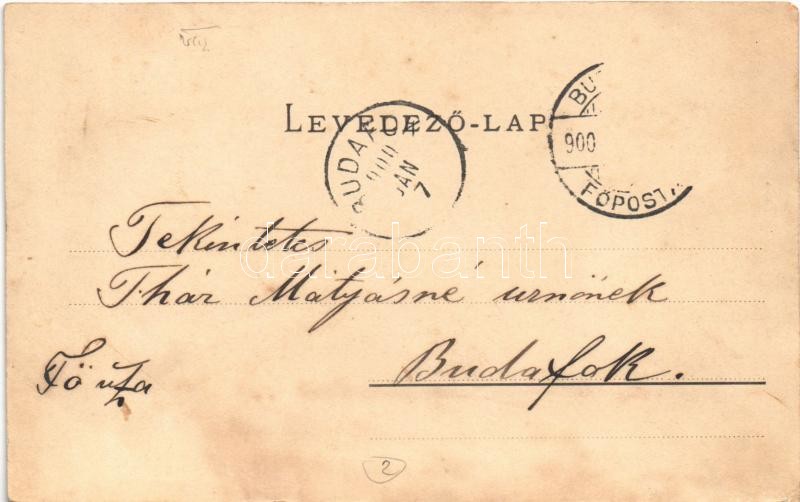 LEVELEZŐ-LAP
BUDAFOK
900
JAN
7
BU
900
FŐPOST
Tekintetes
Thár Mátyásné urnőnek
Budafok.
Fő utza
darabanth
2